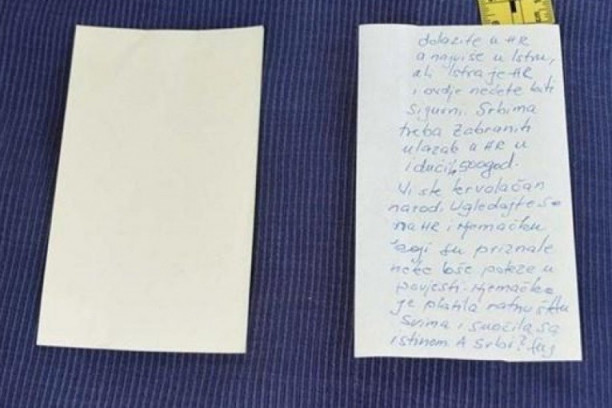 dolazite u HR
a najviše u Istru,
ali Istra je HR
i ovdje nećete biti
sigurni. Srbima
treba zabraniti
ulazak u HR u
idućih 500 god.
Vi ste krvoločan
narod! Ugledajte se
na HR i Njemačku,
koji su priznale
neke loše poteze u
povjesti. Njemačka
je platila ratnu štetu
svima i suočila sa
istinom. A Srbi?